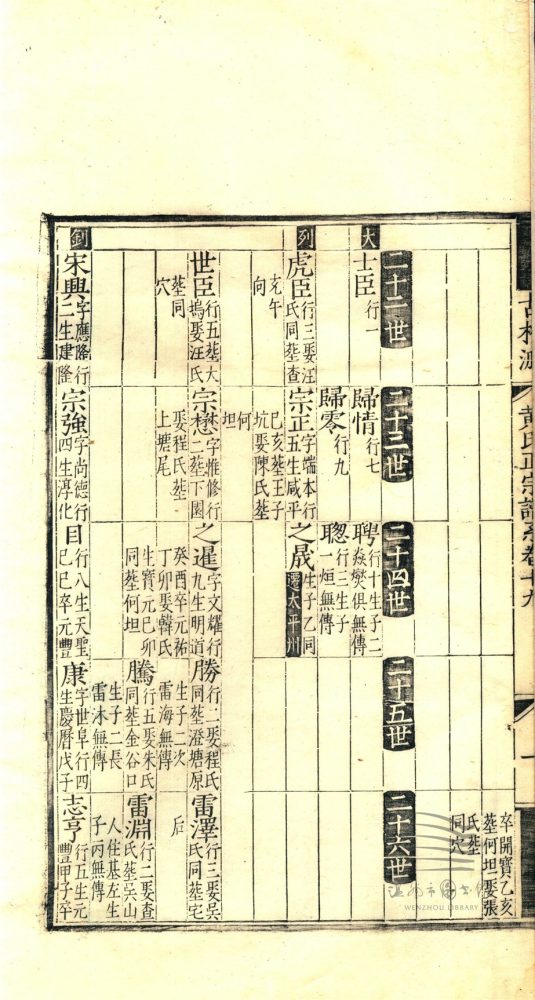 卒開寶乙亥
塟何坦娶張
氏塟
同穴
二十二世
二十三世
二十四世
二十五世
二十六世
大
士臣 行一
歸情 行七
聘 行十生子二
焱爕俱無傳
歸零 行九
聰 行三生子
一烜無傳
列
虎臣 行三娶汪
氏同塟查
充午
向
宗正 字端本行
五生咸平
己亥塟王子
坑娶陳氏塟
何
坦
之晟 生子乙同
遷太平州
世臣 行五塟大
塢娶汪氏
塟同
穴
宗懋 字惟修行
二塟下園
娶程氏塟
上塘尾
之暹 字文耀行
九生明道
癸酉卒元祐
丁卯娶韓氏
生寶元己卯
同塟何坦
勝 行二娶程氏
同塟澄塘原
生子二次
雷海無傳
騰 行五娶朱氏
同塟金谷口
生子二長
雷沐無傳
雷澤 行三娶吳
氏同塟宅
后
雷淵 行二娶查
氏塟吳山
人住基左生
子丙無傳
釗
宋興 字應隆行
二生建隆
宗強 字尚德行
四生淳化
目 行八生天聖
己巳卒元豐
康 字世阜行四
生慶曆戊子
志亨 行五生元
豐甲子卒
黃氏正宗譜系卷十九
一
溫州市圖書館
WENZHOU LIBRARY